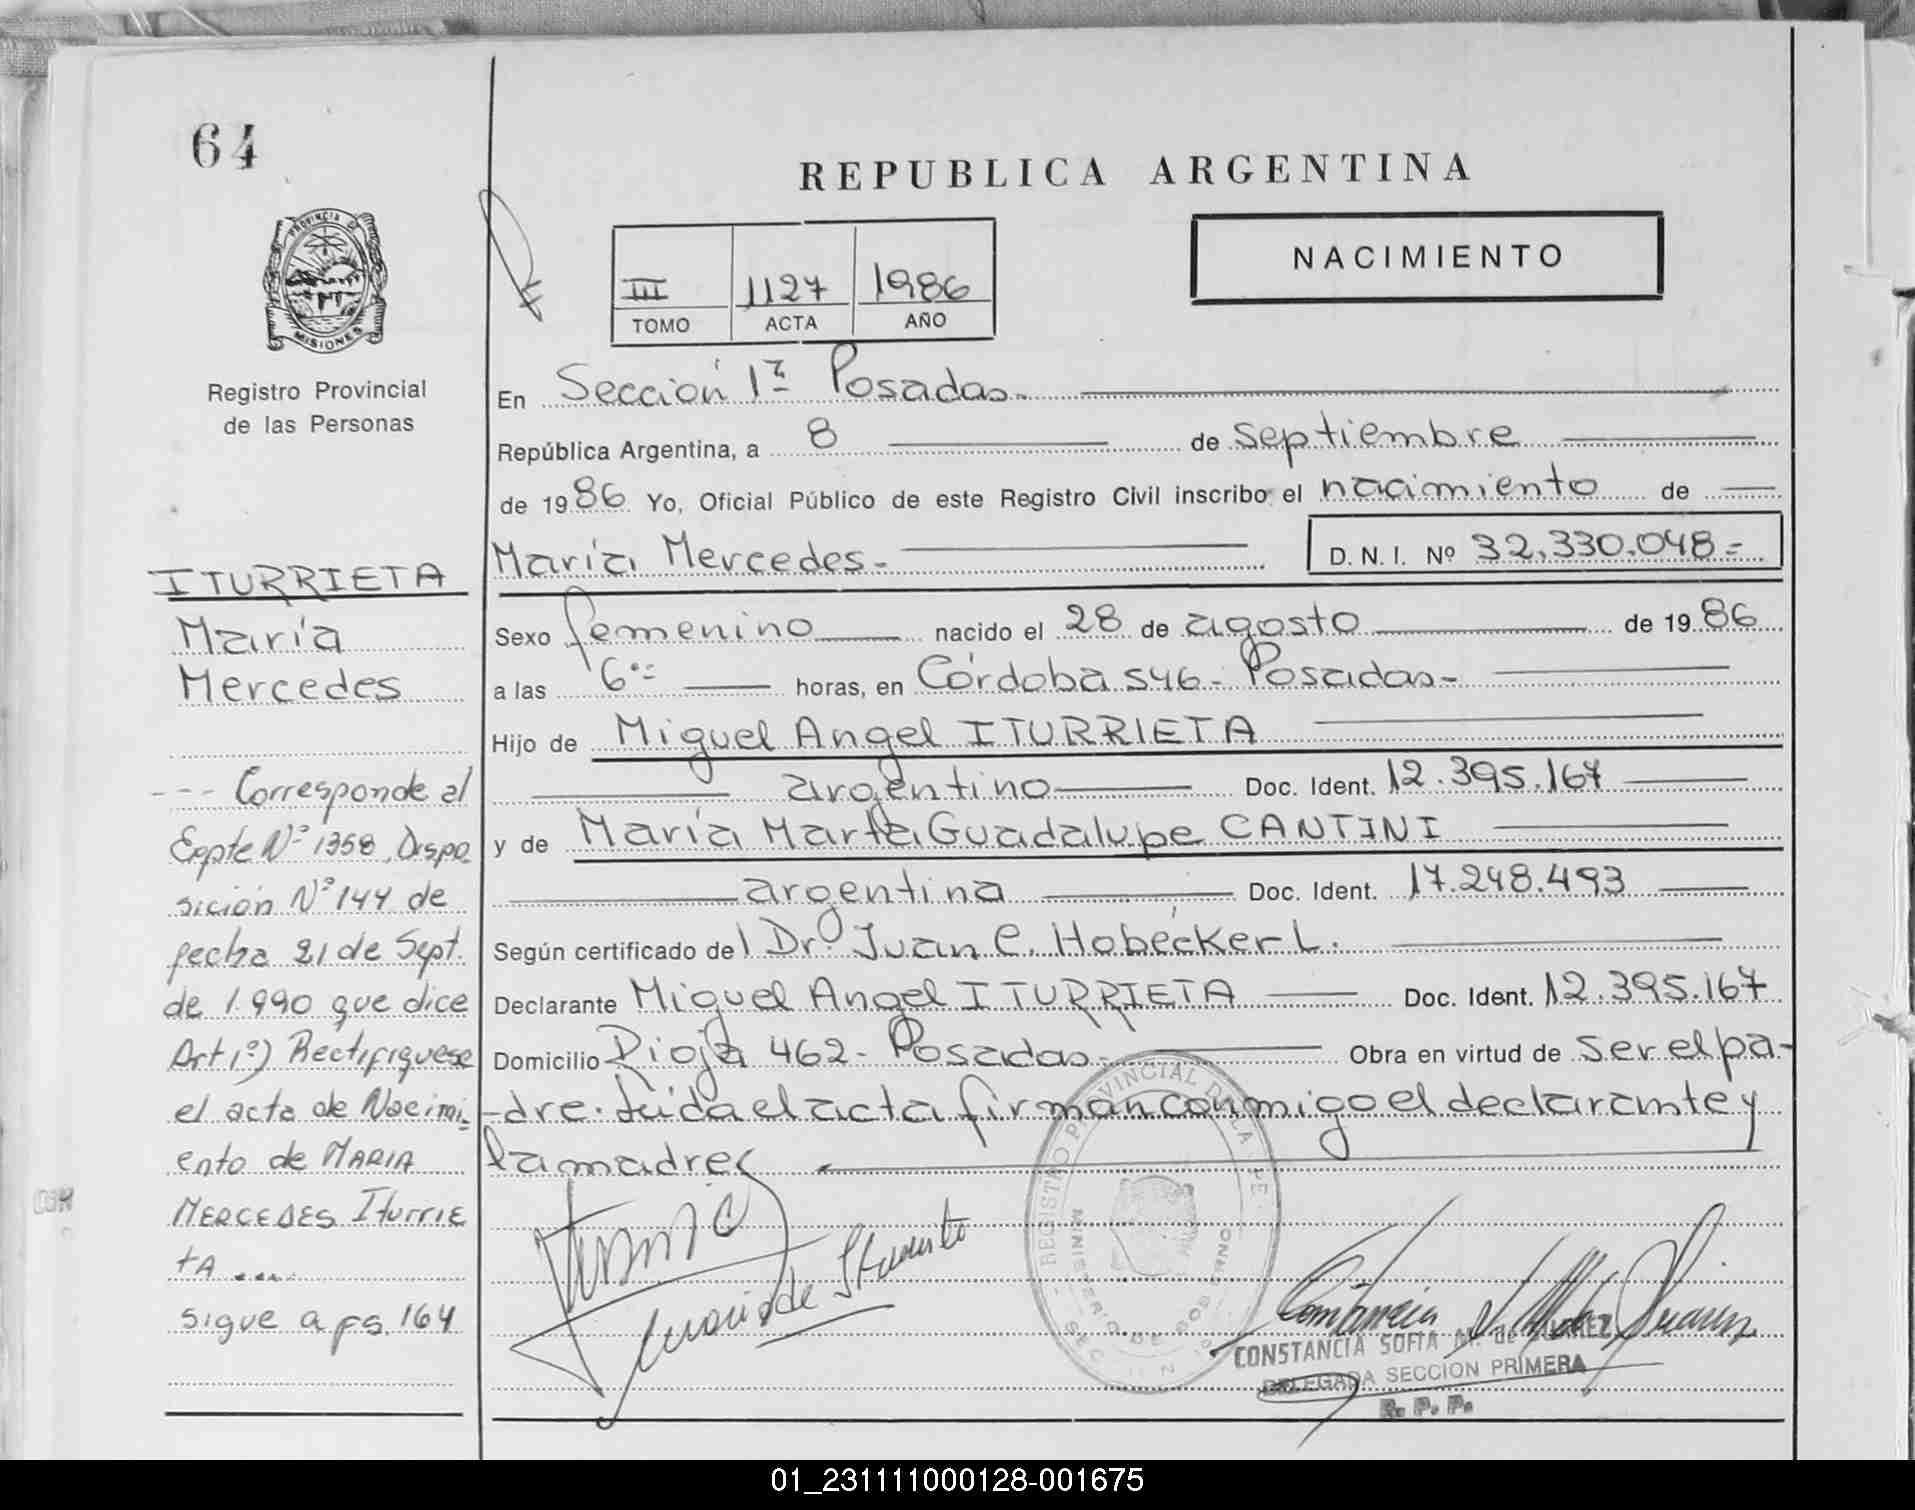 64
REPUBLICA ARGENTINA
PROVINCIA DE
MISIONES
Registro Provincial
de las Personas
III 1127 1986
TOMO ACTA AÑO
NACIMIENTO
En Sección 1ª Posadas.
República Argentina, a 8 de septiembre
de 1986 Yo, Oficial Público de este Registro Civil inscribo el nacimiento de
María Mercedes.- D. N. I. Nº 32.330.048=
Sexo femenino nacido el 28 de agosto de 1986
a las 6 horas, en Córdoba 546- Posadas-
Hijo de Miguel Angel ITURRIETA
argentino Doc. Ident. 12.395.167
y de María Marta Guadalupe CANTINI
argentina Doc. Ident. 17.248.493
Según certificado del Dr. Juan C. Hobecker L.
Declarante Miguel Angel ITURRIETA Doc. Ident. 12.395.167
Domicilio Rioja 462- Posadas- Obra en virtud de ser el pa-
-dre. Leída el acta firman conmigo el declarante y
la madre
ITURRIETA
María
Mercedes
--- Corresponde al
Expte Nº 1358, Dispo
sición Nº 144 de
fecha 21 de Sept.
de 1.990 que dice
Art 1º) Rectifíquese
el acta de Nacimi-
ento de MARIA
MERCEDES Iturrie
tA ....
sigue a fs. 164
REGISTRO PROVINCIAL DE LA PE
MINISTERIO DE GOBIERNO
CONSTANCIA SOFIA M. de SUAREZ
DELEGADA SECCION PRIMERA
R. P. P.
01_231111000128-001675